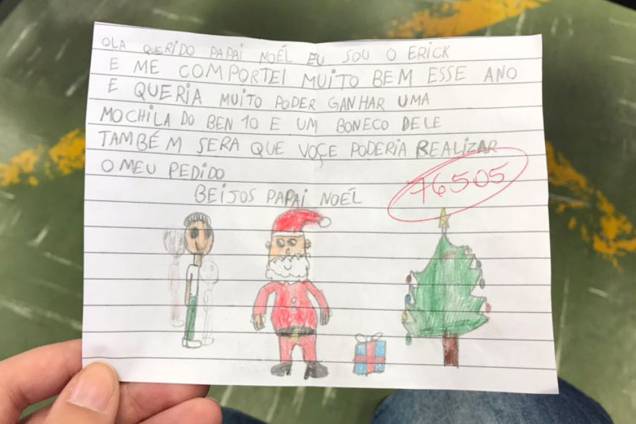 OLA QUERIDO PAPAI NOÉL EU SOU O ERICK
E ME COMPORTEI MUITO BEM ESSE ANO
E QUERIA MUITO PODER GANHAR UMA
MOCHILA DO BEN 10 E UM BONECO DELE
TAMBÉM SERA QUE VOÇE PODERIA REALIZAR
O MEU PEDIDO
76505
BEIJOS PAPAI NOÉL